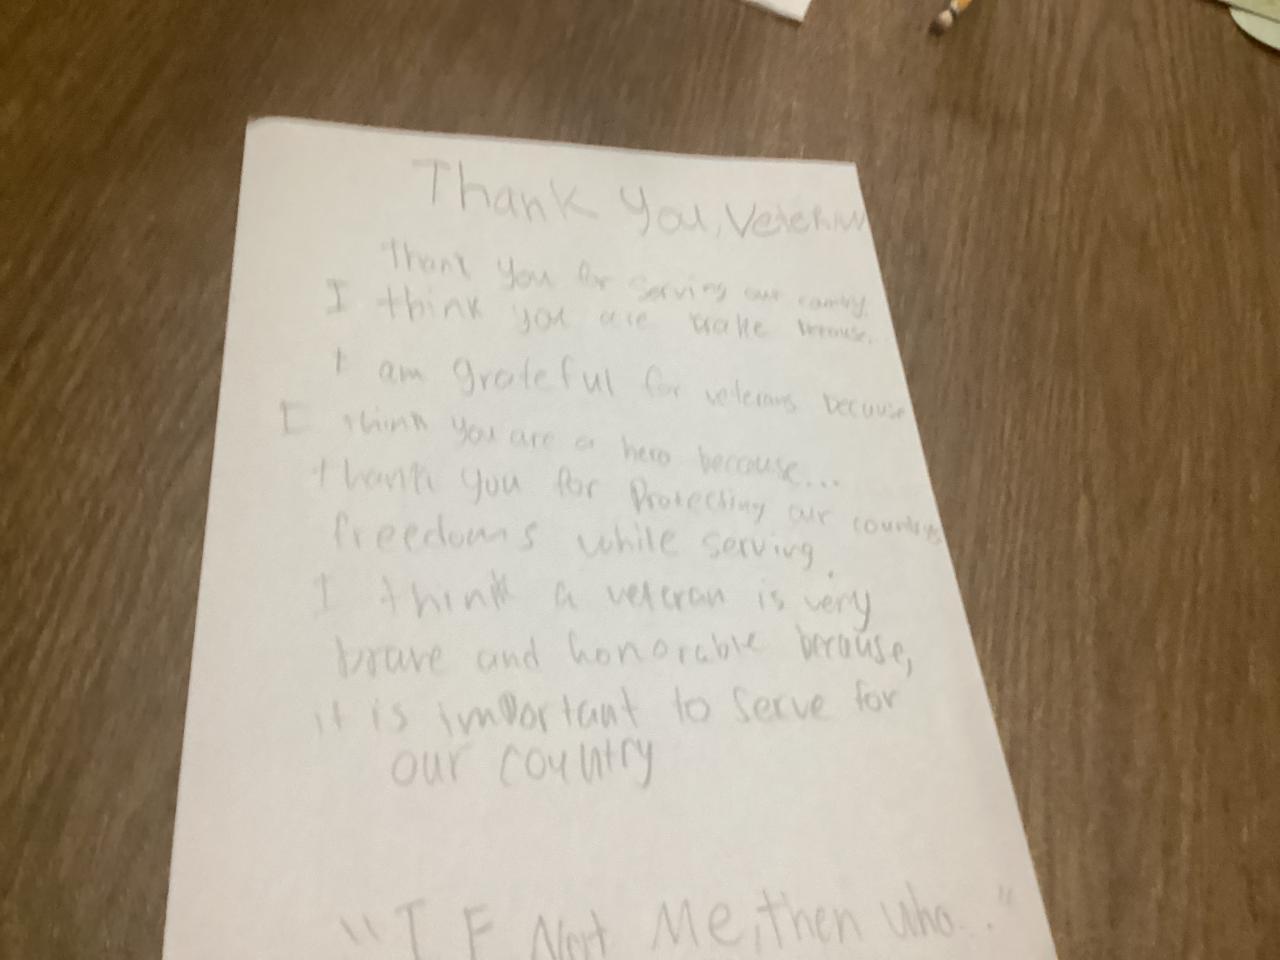 Thank You, Veteran
thank you for serving our country
I think you are because.
I am grateful for veterans because
I think you are a hero because...
thank you for Protecting our
freedoms while serving.
I think a veteran is very
brave and honorable because,
it is important to serve for
our country
"IF Not Me, then who..."